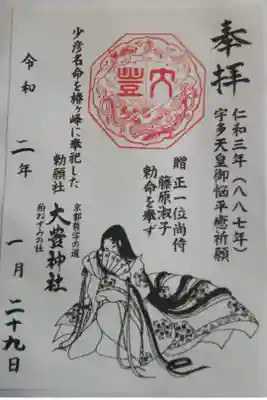 奉拝
仁和三年(八八七年)
宇多天皇御悩平癒祈願
贈 正一位尚侍
藤原淑子
勅命を奉ず
大豊
少彦名命を椿ヶ峰に奉祀した
勅願社
京都哲学の道
狛ねずみの社
大豊神社
令和二年一月二十九日